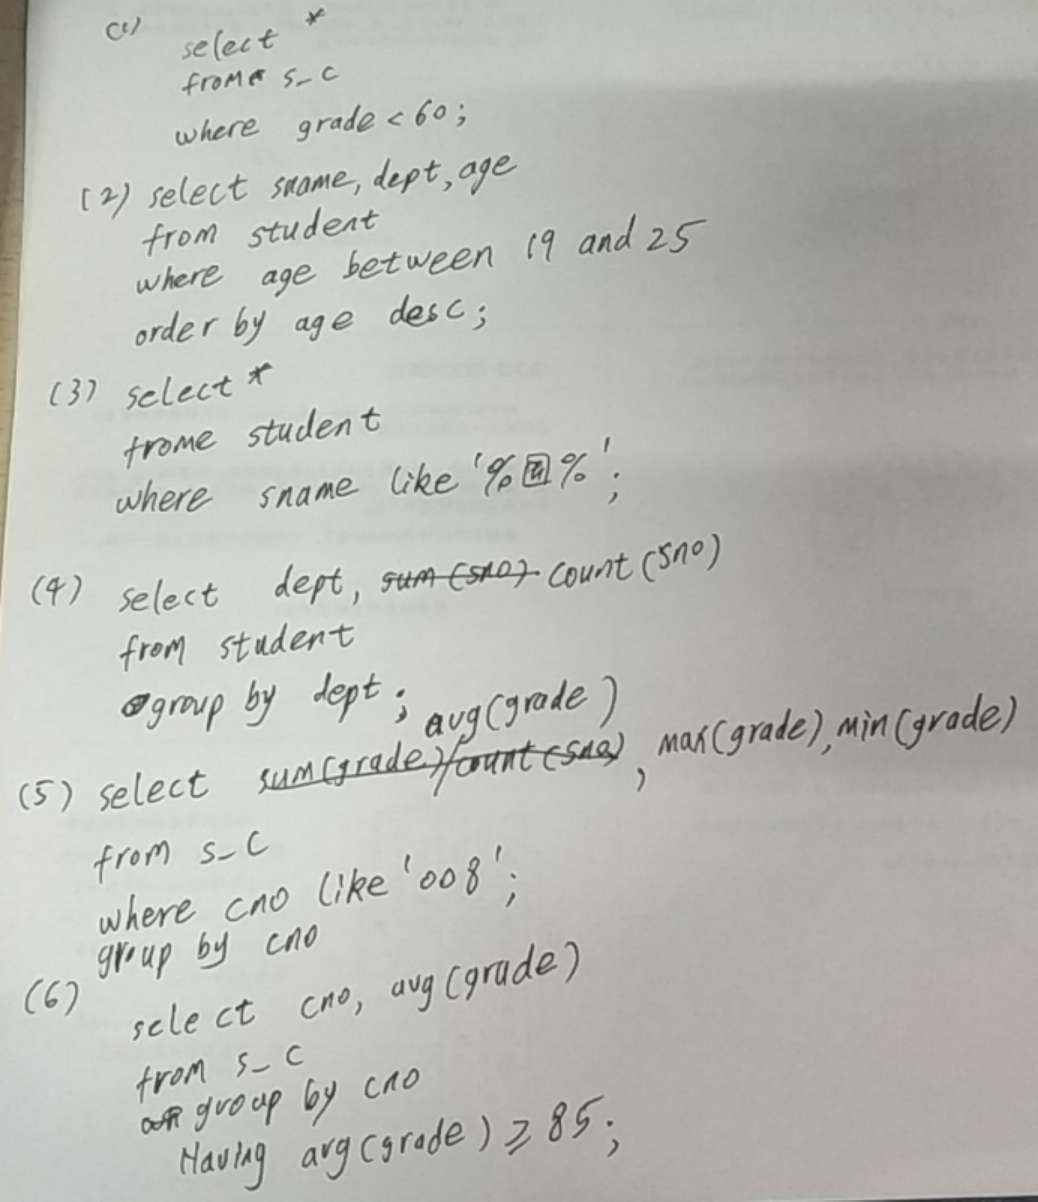 (1)
select *
from s_c
where grade < 60;
(2) select sname, dept, age
from student
where age between 19 and 25
order by age desc;
(3) select *
frome student
where sname like '%四%';
(4) select dept, sum(sno) count(sno)
from student
group by dept;
avg(grade)
(5) select sum(grade)/count(sno), max(grade), min(grade)
from s_c
where cno like '008';
group by cno
(6)
select cno, avg(grade)
from s_c
group by cno
Having avg(grade) ≥ 85;